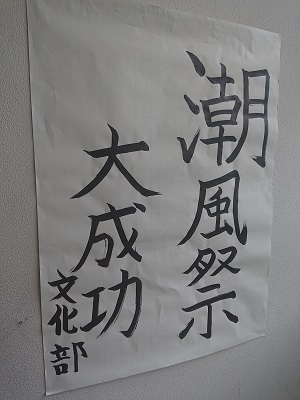 潮風祭
大成功
文化部